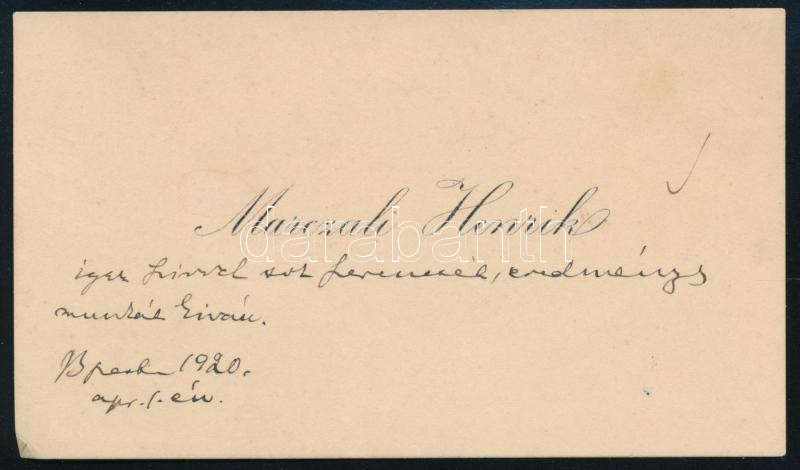 Marczali Henrik
darabanth
igaz szívvel sok szerencsét, eredményes
munkát kíván.
Bpest 1920.
apr. 1. én.